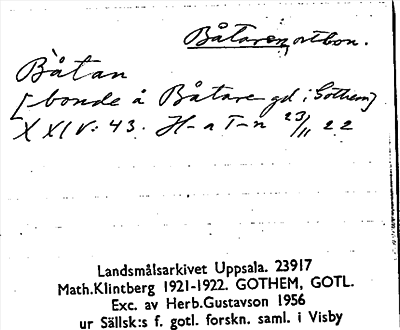 Båtaren, ortbon.
Båtan
[bonde å Båtare gd i Gothem]
XXIV: 43. H-a T-n 23/11 22
Landsmålsarkivet Uppsala. 23917
Math.Klintberg 1921-1922. GOTHEM, GOTL.
Exc. av Herb.Gustavson 1956
ur Sällsk:s f. gotl. forskn. saml. i Visby